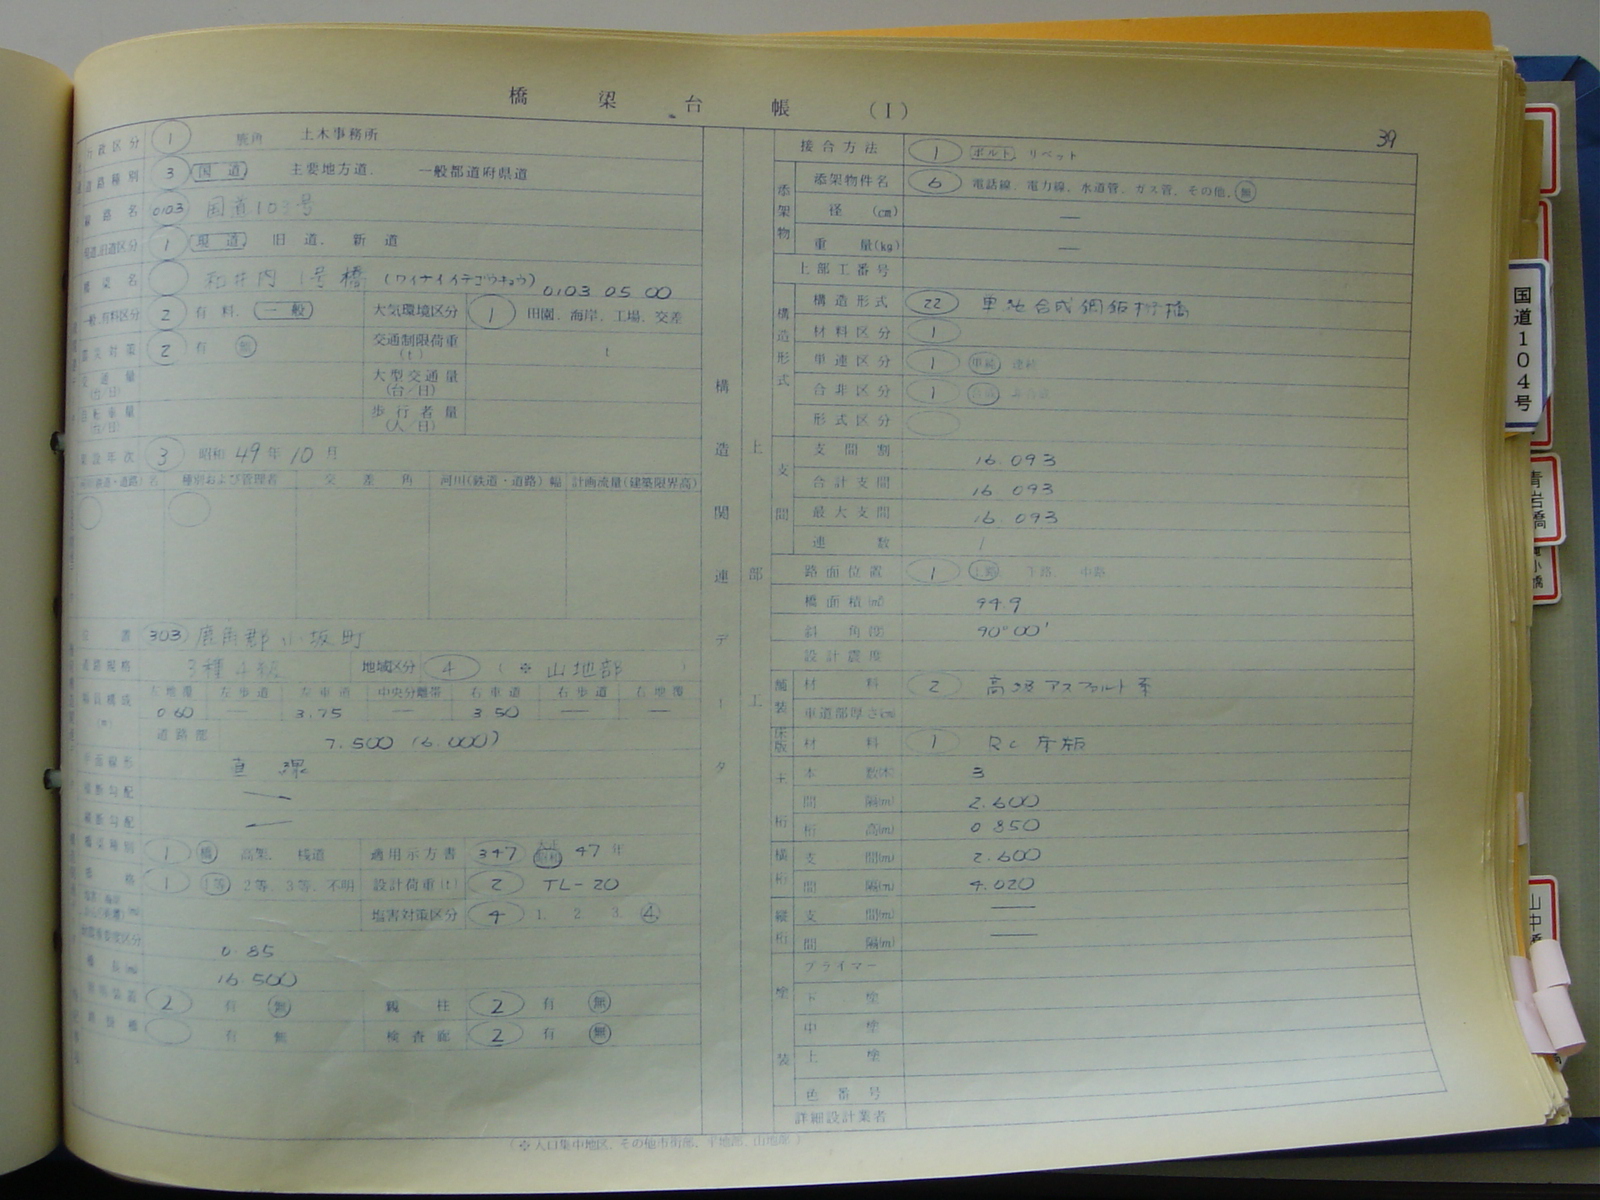 橋梁台帳(1)
39
行政区分 1 鹿角 土木事務所
道路種別 3 国道 主要地方道、 一般都道府県道
路線名 0103 国道103号
現道旧道区分 1 現道 旧道、 新道
橋梁名 和井内1号橋 (ワイナイイチゴウキョウ) 0103 05 00
一般、有料区分 2 有料、 一般 大気環境区分 1 田園、海岸、工場、交差
2 有 無 交通制限荷重(t) t
交通量(台/日) 大型交通量(台/日)
自転車量 歩行者量(人/日)
架設年次 3 昭和 49年 10月
河川(鉄道・道路)名 種別および管理者 交差角 河川(鉄道・道路)幅 計画流量(建築限界高)
位置 303 鹿角郡小坂町
道路規格 3種4級 地域区分 4 (※ 山地部 )
幅員構成(m) 左地覆 左歩道 左車道 中央分離帯 右車道 右歩道 右地覆
0.60 — 3.75 — 3.50 — —
道路部 7.500 (6.000)
平面線形 直線
縦断勾配 —
横断勾配 —
橋梁種別 1 橋 高架、 桟道 適用示方書 347 昭和 47年
等格 1 1等 2等、3等、不明 設計荷重(t) 2 TL-20
塩害対策区分 4 1. 2 3. 4
0.85
橋長(m) 16.500
2 有 無 親柱 2 有 無
有 無 検査廊 2 有 無
(※人口集中地区、その他市街部、平地部、山地部)
構造関連データ
上部工
接合方法 1 ボルト リベット
添架物
添架物件名 6 電話線、電力線、水道管、ガス管、その他、無
径 (cm) —
重量(kg) —
上部工番号
構造形式
構造形式 22 単純合成鋼鈑桁橋
材料区分 1
単連区分 1 単純 連続
合非区分 1 合成 非合成
形式区分
支間
支間割 16.093
合計支間 16.093
最大支間 16.093
連数 1
路面位置 1 上路 下路、 中路
橋面積(㎡) 94.9
斜角度 90°00'
設計震度
舗装
材料 2 高級アスファルト系
車道部厚さ(cm)
床版 材料 1 RC床版
主桁
本数(本) 3
間隔(m) 2.600
桁高(m) 0.850
横桁
支間(m) 2.600
間隔(m) 4.020
縦桁
支間(m) —
間隔(m) —
塗装
プライマー
下塗
中塗
上塗
色番号
詳細設計業者
国道104号
青岩橋
小橋
山中橋